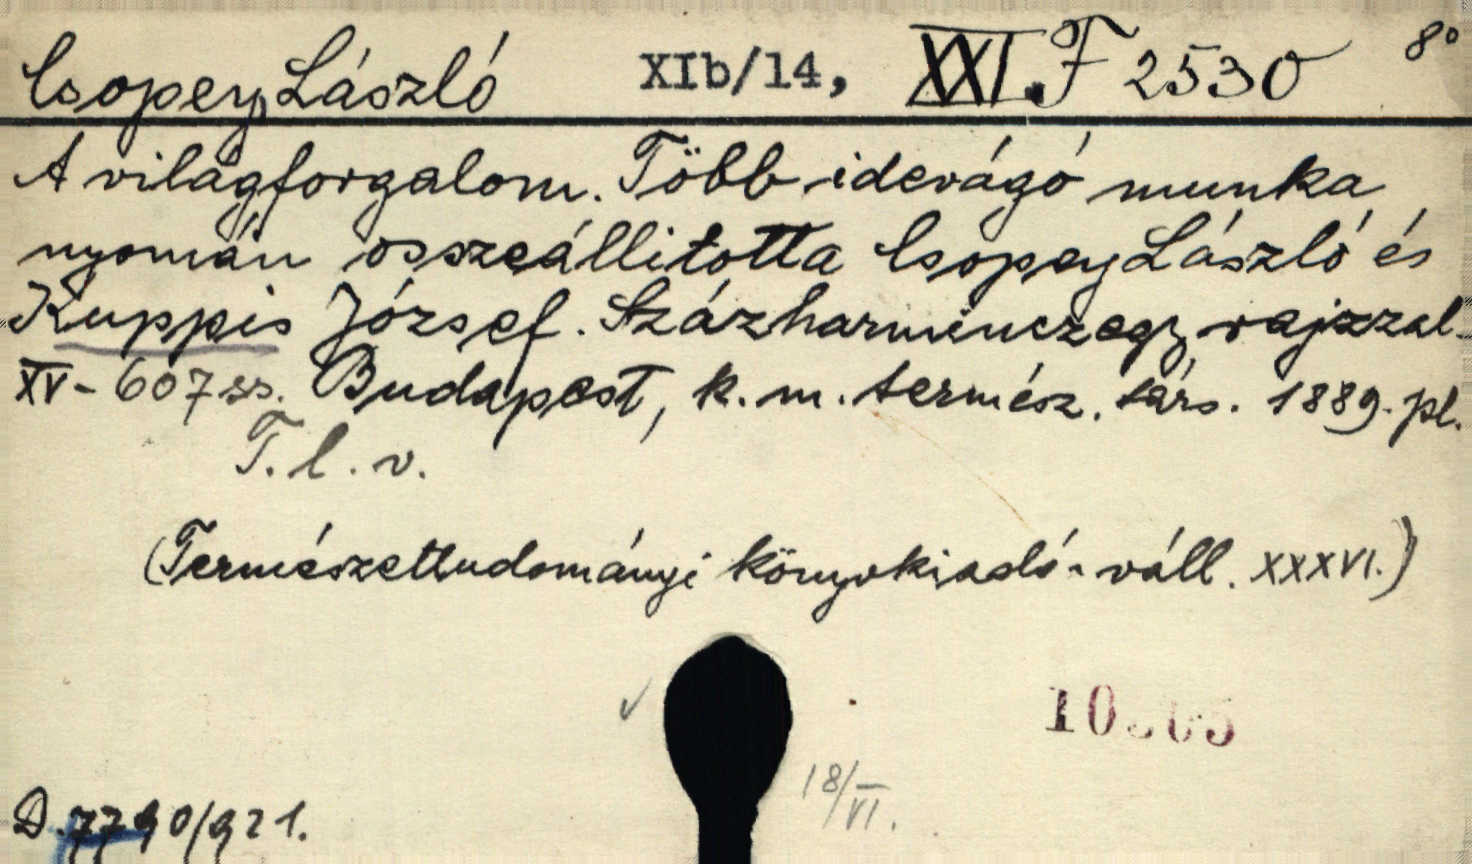 Csopey László XIb/14, XXI. F 2530 8°
A világforgalom. Több idevágó munka
nyomán összeállitotta Csopey László és
Kuppis József. Százharminczegy rajzzal.
XV-607 ss. Budapest, k. m. termész. társ. 1889. pl.
T. l. v.
(Természettudományi könyvkiadó-váll. XXXVI.)
18/VI.
D. 7790/921.